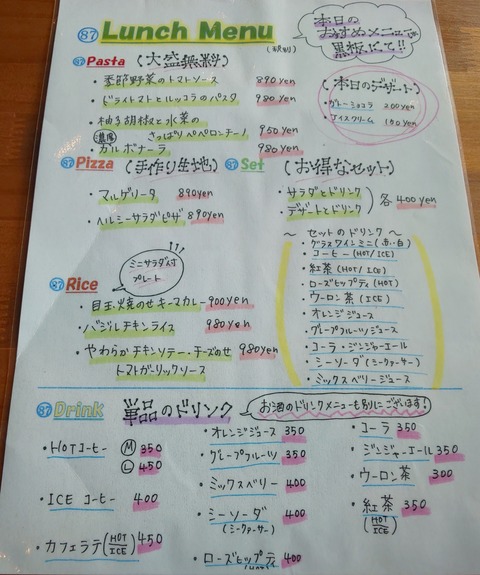 87 Lunch Menu
(税別)
本日の
おすすめメニューは
黒板にて!!
87 Pasta (大盛無料)
・季節野菜のトマトソース 890yen
・ドライトマトとルッコラのパスタ 980yen
・柚子胡椒と水菜の
さっぱりペペロンチーノ 950yen
・濃厚カルボナーラ 980yen
(本日のデザート)
・ガトーショコラ 200yen
・アイスクリーム 100yen
87 Pizza (手作り生地)
・マルゲリータ 890yen
・ヘルシーサラダピザ 890yen
87 Set (お得なセット)
・サラダとドリンク
・デザートとドリンク
各400yen
〜 セットのドリンク 〜
・グラスワインミニ(赤・白)
・コーヒー(HOT/ICE)
・紅茶(HOT/ICE)
・ローズヒップティ(HOT)
・ウーロン茶(ICE)
・オレンジジュース
・グレープフルーツジュース
・コーラ・ジンジャーエール
・シーソーダ(シークァーサー)
・ミックスベリージュース
ミニサラダ付
プレート
87 Rice
・目玉焼のせキーマカレー 900yen
・バジルチキンライス 980yen
・やわらかチキンソテー・チーズのせ 980yen
トマトガーリックソース
87 Drink 単品のドリンク
お酒のドリンクメニューも別にございます!
・HOTコーヒー M 350
L 450
・ICE コーヒー 400
・カフェラテ(HOT ICE) 450
・オレンジジュース 350
・グレープフルーツ 350
・ミックスベリー 400
・シーソーダ 400
(シークァーサー)
・ローズヒップティ 400
(HOT)
・コーラ 350
・ジンジャーエール 350
・ウーロン茶 300
・紅茶 350
(HOT ICE)